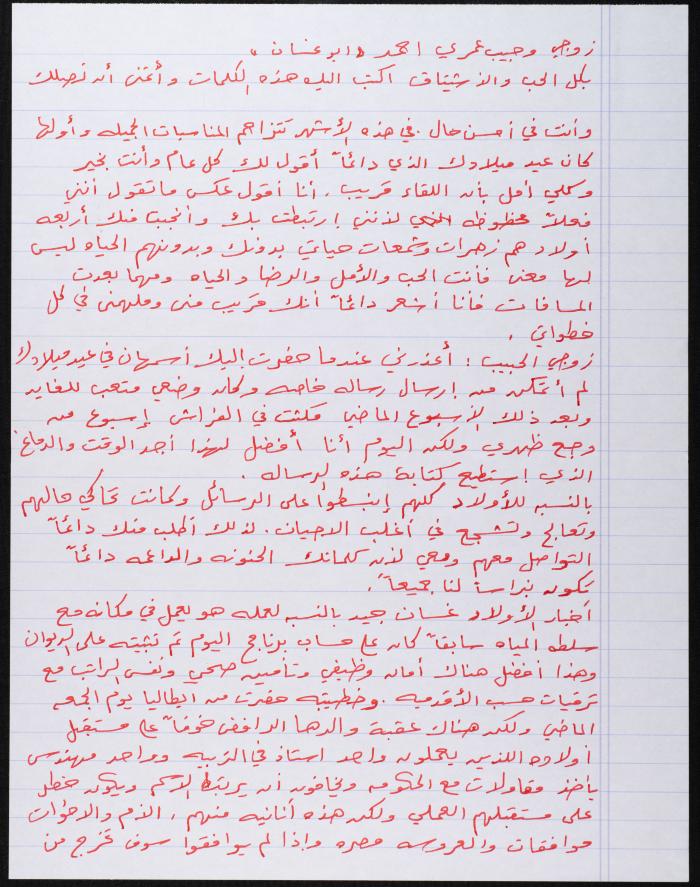 زوجي وحبيب عمري احمد "ابو غسان"
بكل الحب والاشتياق اكتب اليك هذه الكلمات وأتمنى أن تصلك
وأنت في أحسن حال. في هذه الأشهر تتزاحم المناسبات الجميله وأولها
كان عيد ميلادك الذي دائماً أقول لك كل عام وأنت بخير
وكلي أمل بأن اللقاء قريب. أنا أقول عكس ما تقول أنني
فعلاً محظوظه لأنني ارتبطت بك وأنجبت منك أربعه
أولاد هم زهرات وشمعات حياتي بدونك وبدونهم الحياه ليس
لها معنى فأنت الحب والأمل والرضا والحياه ومهما بعدت
المسافات فأنا أشعر دائماً أنك قريب مني وملهمني في كل
خطواتي.
زوجي الحبيب: أعذرني عندما حضرت إليك أسمهان في عيد ميلادك
لم أتمكن من إرسال رساله خاصه وكان وضعي متعب للغايه
وبعد ذلك الإسبوع الماضي مكثت في الفراش إسبوع من
وجع ظهري ولكن اليوم أنا أفضل لهذا أجد الوقت والدماغ
الذي إستطيع كتابة هذه الرساله.
بالنسبه للأولاد كلهم إنبسطوا على الرسائل وكمانت تحاكي حالهم
وتعالج وتشجع في أغلب الاحيان. لذلك أطلب منك دائماً
التواصل معهم ومعي لأن كلماتك الحنونه والداعمه دائماً
تكون نبراساً لنا جميعاً.
أخبار الأولاد غسان جيد بالنسبه لعمله هو يعمل في مكانه مع
سلطه المياه سابقاً كان على حساب برنامج اليوم تم تثبيته على الديوان
وهذا أفضل هناك أمان وظيفي وتأمين صحي ونفس الراتب مع
ترقيات حسب الأقدميه. وخطيبته حضرت من ايطاليا يوم الجمعه
الماضي ولكن هناك عقبة والدها الرافض خوفاً على مستقبل
أولاده اللذين يعملون واحد استاذ في التربيه وواحد مهندس
يأخذ مقاولات مع الحكومه ويخافون أن يرتبط الاسم ويكون خطر
على مستقبلهم العملي ولكن هذه أنانيه منهم. الأم والاخوات
موافقات والعروسه مصره وإذا لم يوافقوا سوف تخرج من